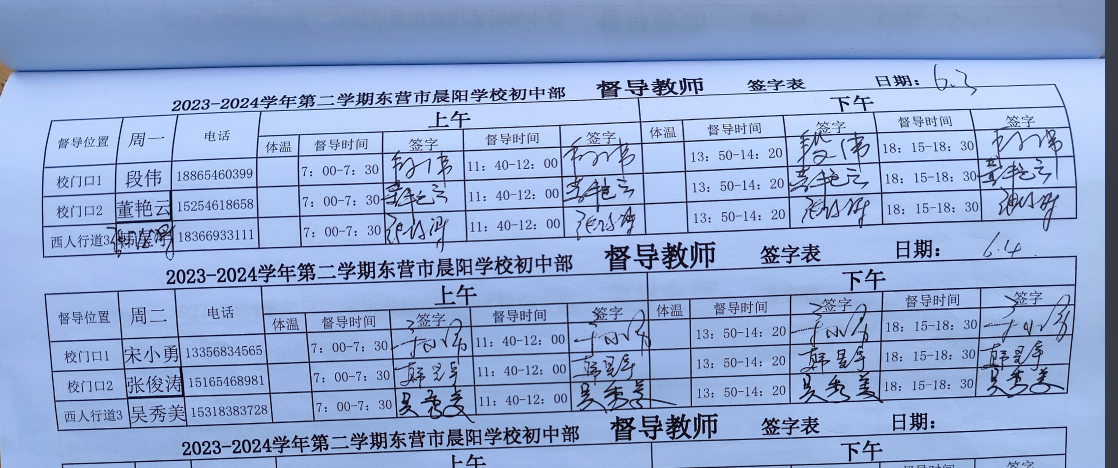 2023-2024学年第二学期东营市晨阳学校初中部 督导教师 签字表 日期: 6.3
督导位置 周一 电话 上午 下午
体温 督导时间 签字 督导时间 签字 体温 督导时间 签字 督导时间 签字
校门口1 段伟 18865460399 7: 00-7: 30 11: 40-12: 00 13: 50-14: 20 段伟 18: 15-18: 30
校门口2 董艳云 15254618658 7: 00-7: 30 董艳云 11: 40-12: 00 董艳云 13: 50-14: 20 董艳云 18: 15-18: 30 董艳云
西人行道3 18366933111 7: 00-7: 30 11: 40-12: 00 13: 50-14: 20 18: 15-18: 30
2023-2024学年第二学期东营市晨阳学校初中部 督导教师 签字表 日期: 6.4
督导位置 周二 电话 上午 下午
体温 督导时间 签字 督导时间 签字 体温 督导时间 签字 督导时间 签字
校门口1 宋小勇 13356834565 7: 00-7: 30 11: 40-12: 00 13: 50-14: 20 18: 15-18: 30
校门口2 张俊涛 15165468981 7: 00-7: 30 11: 40-12: 00 13: 50-14: 20 18: 15-18: 30
西人行道3 吴秀美 15318383728 7: 00-7: 30 吴秀美 11: 40-12: 00 吴秀美 13: 50-14: 20 吴秀美 18: 15-18: 30 吴秀美
2023-2024学年第二学期东营市晨阳学校初中部 督导教师 签字表 日期:
上午 下午
签字